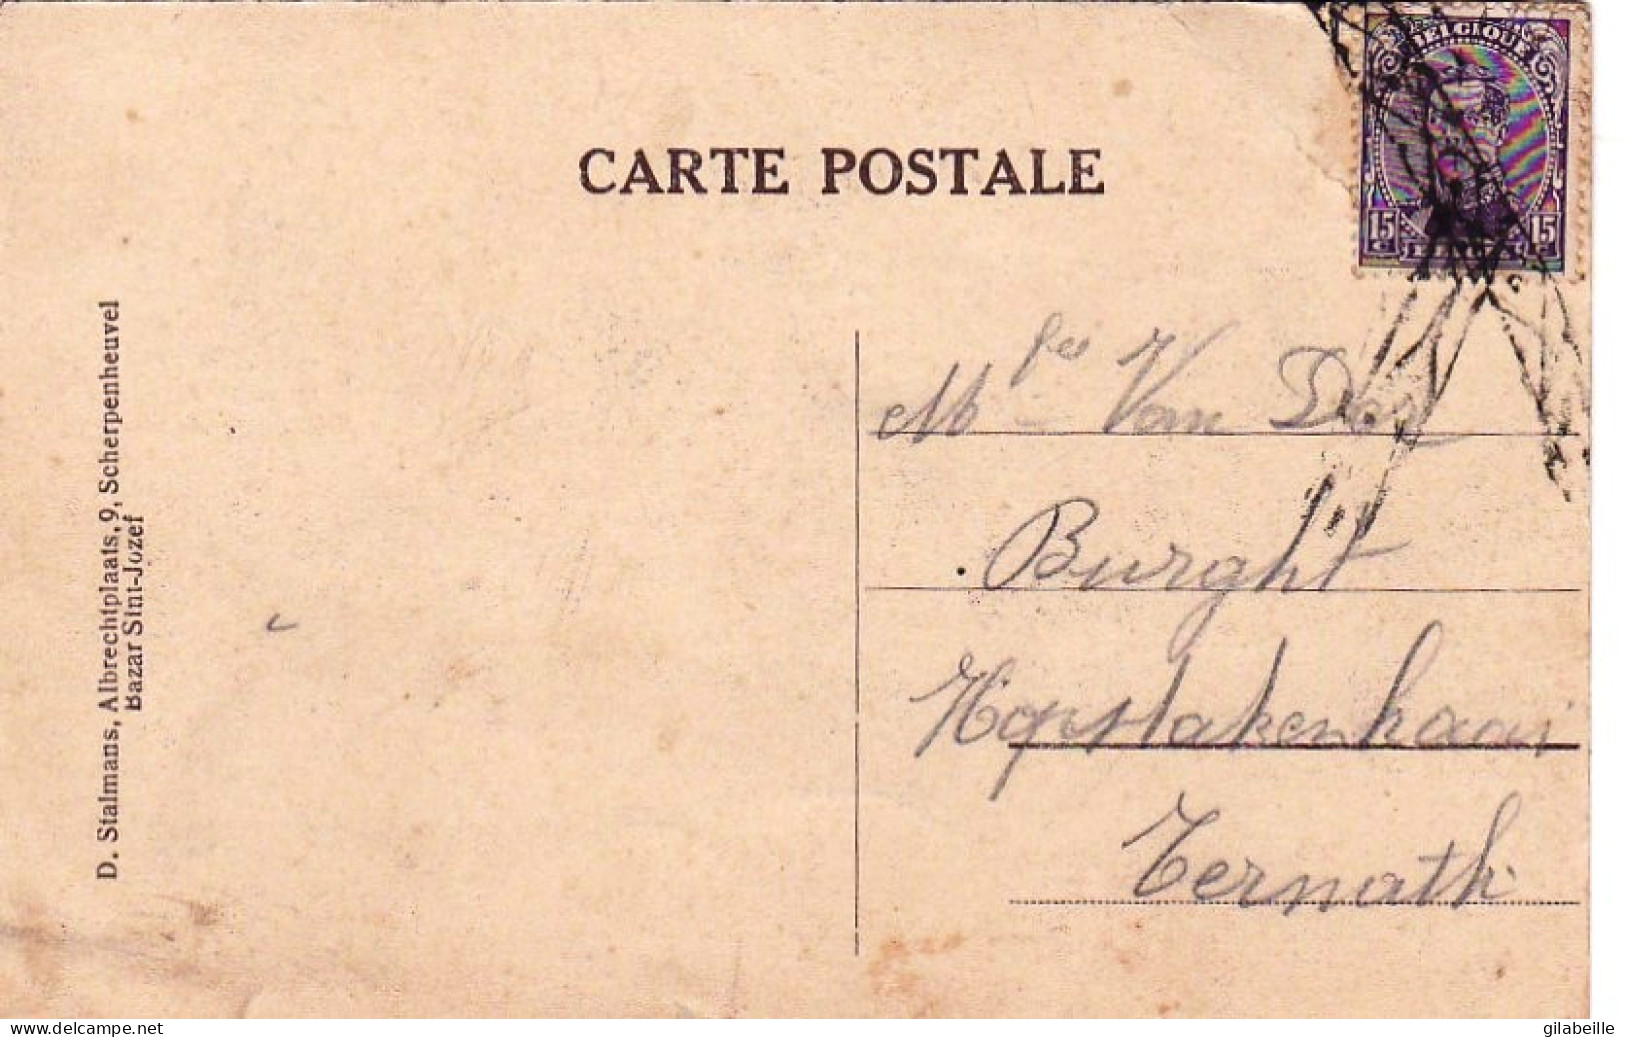 BELGIQUE
15 15
CARTE POSTALE
D. Stalmans, Albrechtplaats, 9, Scherpenheuvel
Bazar Sint-Jozef
Van
Burght
Ternath
website: delcampe.net
gilabeille